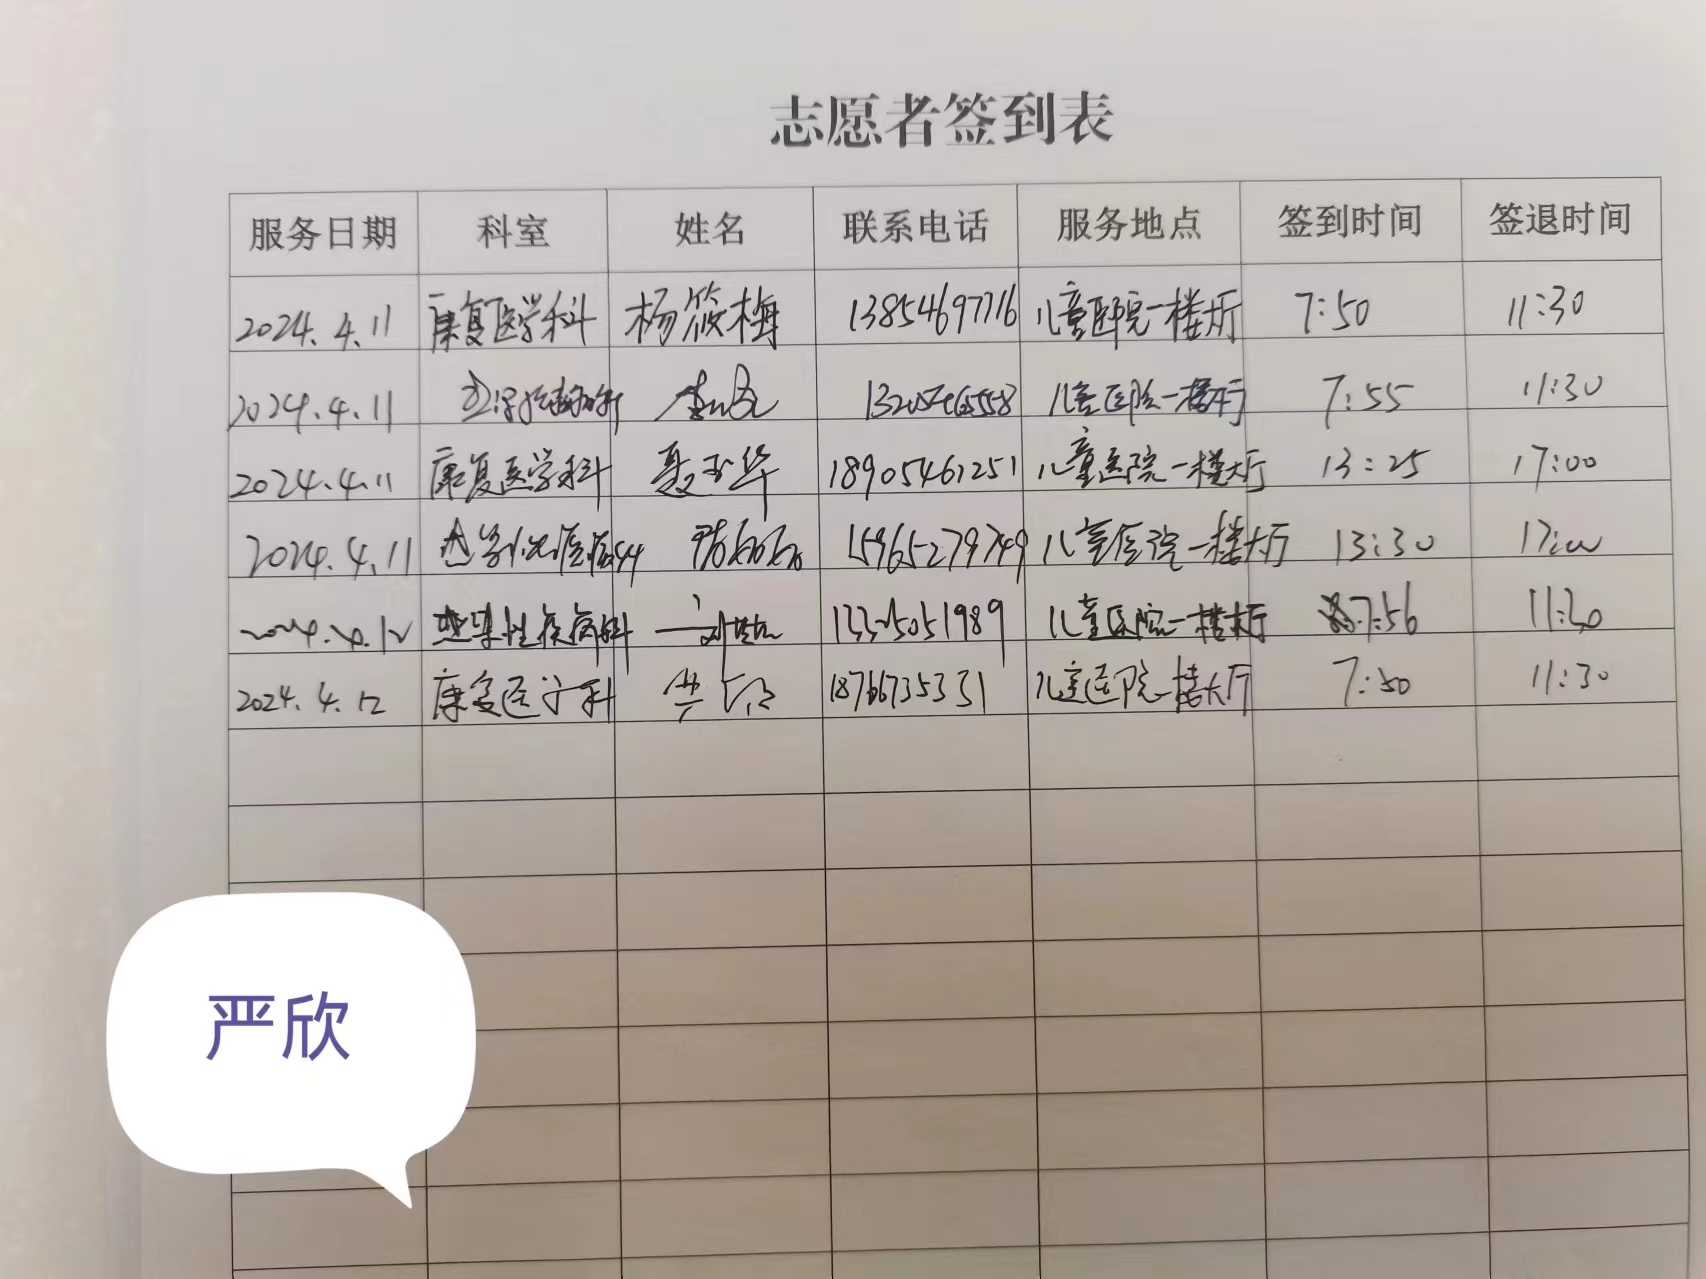 志愿者签到表
服务日期 科室 姓名 联系电话 服务地点 签到时间 签退时间
2024.4.11 康复医学科 杨筱梅 13854697716 儿童医院一楼大厅 7:50 11:30
2024.4.11 儿童医院一楼大厅 7:55 11:30
2024.4.11 康复医学科 聂玉华 18905461251 儿童医院一楼大厅 13:25 17:00
2024.4.11 15965279749 儿童医院一楼大厅 13:30 17:00
2024.4.12 感染性疾病科 儿童医院一楼大厅 7:56 11:30
2024.4.12 康复医学科 18766735331 儿童医院一楼大厅 7:50 11:30
严欣